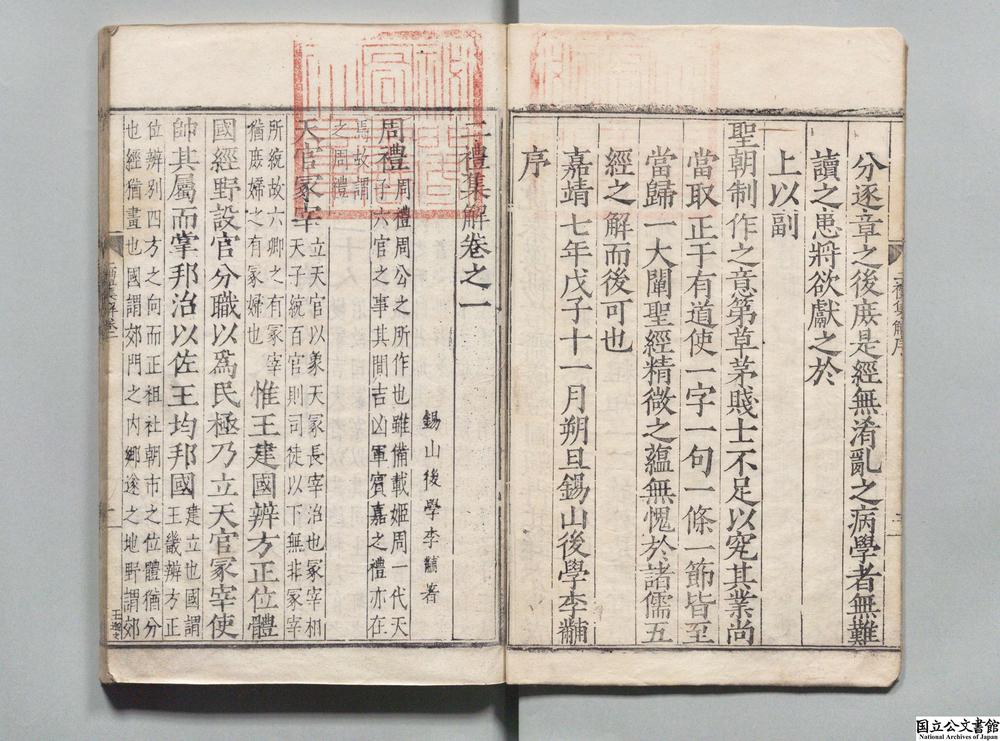 分逐章之後庻是經無淆亂之病學者無難
讀之患將欲獻之於
上以副
聖朝制作之意第草茅賤士不足以究其業尚
當取正于有道使一字一句一條一節皆至
當歸一大闡聖經精微之蘊無愧於諸儒五
經之解而後可也
嘉靖七年戊子十一月朔旦錫山後學李黼
序
二禮集解序
二禮集解卷之一
錫山後學李黼著
周禮
周禮周公之所作也雖備載姬周一代天
子六官之事其間吉凶軍賓嘉之禮亦在
焉故謂
之周禮
天官冢宰
立天官以象天冢長宰治也冢宰相
天子統百官則司徒以下無非冢宰
所統故六卿之有冢宰
猶庻婦之有冢婦也
惟王建國辨方正位體
國經野設官分職以爲民極乃立天官冢宰使
帥其屬而掌邦治以佐王均邦國
建立也國謂
王畿辨方正
位辨别四方之向而正祖社朝市之位體猶分
也經猶畫也國謂郊門之内鄉遂之地野謂郊
国立公文書館
National Archives of Japan